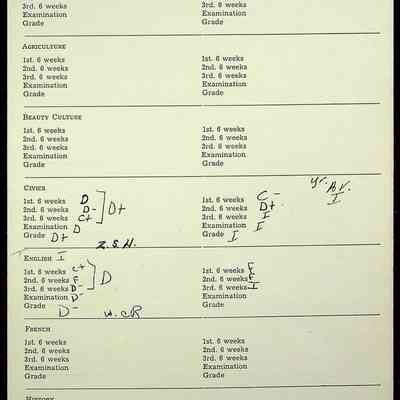 3rd. 6 weeks 3rd. 6 weeks
Examination Examination
Grade Grade
AGRICULTURE
1st. 6 weeks 1st. 6 weeks
2nd. 6 weeks 2nd. 6 weeks
3rd. 6 weeks 3rd. 6 weeks
Examination Examination
Grade Grade
BEAUTY CULTURE
1st. 6 weeks 1st. 6 weeks
2nd. 6 weeks 2nd. 6 weeks
3rd. 6 weeks 3rd. 6 weeks
Examination Examination
Grade Grade
CIVICS yr. Av.
I
1st. 6 weeks D 1st. 6 weeks C-
2nd. 6 weeks D- D+ 2nd. 6 weeks D+
3rd. 6 weeks C+ 3rd. 6 weeks I
Examination D Examination I
Grade D+ Grade I
Z.S.H.
ENGLISH I
1st. 6 weeks C+ 1st. 6 weeks F
2nd. 6 weeks F D 2nd. 6 weeks
3rd. 6 weeks D- 3rd. 6 weeks I
Examination D- Examination
Grade D- Grade
FRENCH
1st. 6 weeks 1st. 6 weeks
2nd. 6 weeks 2nd. 6 weeks
3rd. 6 weeks 3rd. 6 weeks
Examination Examination
Grade Grade
HISTORY